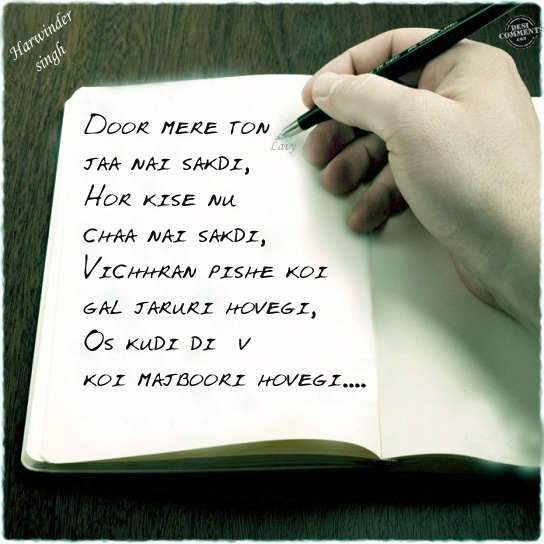 Harwinder
singh
DESI
COMMENTS
.com
DOOR MERE TON
JAA NAI SAKDI,
HOR KISE NU
CHAA NAI SAKDI,
VICHHRAN PISHE KOI
GAL JARURI HOVEGI,
OS KUDI DI V
KOI MAJBOORI HOVEGI....
Lavy